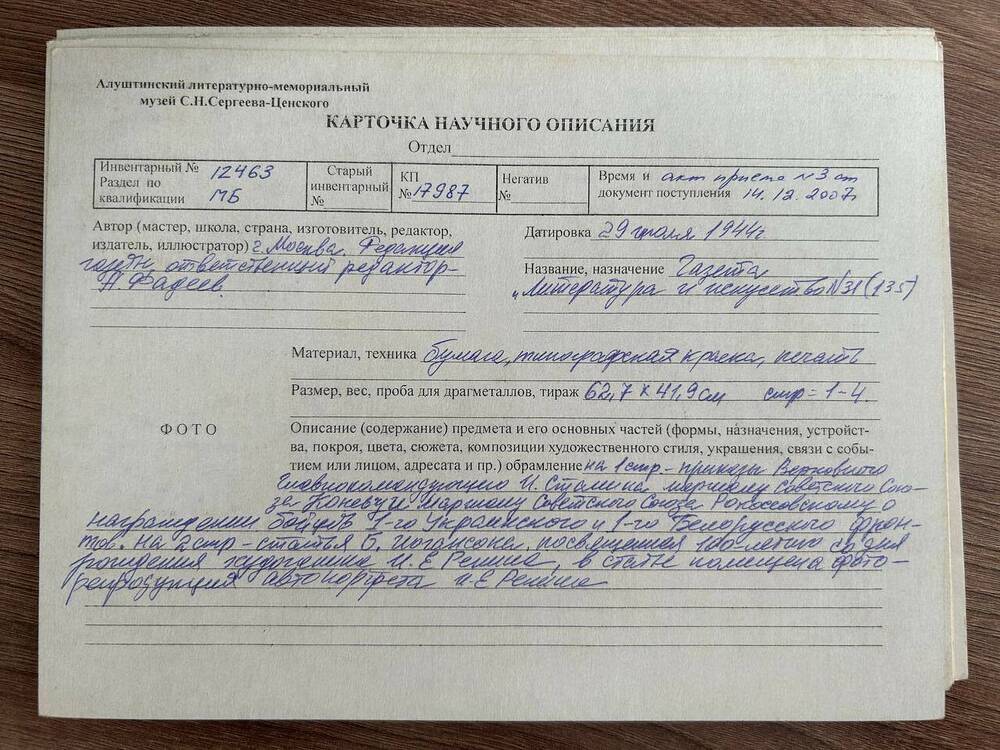 Алуштинский литературно-мемориальный
музей С.Н.Сергеева-Ценского
КАРТОЧКА НАУЧНОГО ОПИСАНИЯ
Отдел
Инвентарный № 12463
Раздел по
квалификации МБ
Старый
инвентарный
№
КП
№ 17987
Негатив
№
Время и акт приема N3 от
документ поступления 14.12.2007г
Автор (мастер, школа, страна, изготовитель, редактор,
издатель, иллюстратор) г. Москва. Редакция
газеты, ответственный редактор-
А. Фадеев.
Датировка 29 июля 1944г.
Название, назначение Газета
"Литература и искусство" N31 (135)
Материал, техника бумага, типографская краска, печать
Размер, вес, проба для драгметаллов, тираж 62,7 х 41,9 см стр = 1-4.
ФОТО
Описание (содержание) предмета и его основных частей (формы, назначения, устройст-
ва, покроя, цвета, сюжета, композиции художественного стиля, украшения, связи с собы-
тием или лицом, адресата и пр.) обрамление на 1 стр.- приказы Верховного
Главнокомандующего И. Сталина маршалу Советского Сою-
за Коневу и маршалу Советского Союза Рокоссовскому о
награждении бойцов 1-го Украинского и 1-го Белорусского фрон-
тов. На 2 стр - статья Б. Иогансона, посвященная 100-летию со дня
рождения художника И.Е. Репина, в статье помещена фото-
репродукция автопортрета И.Е Репина